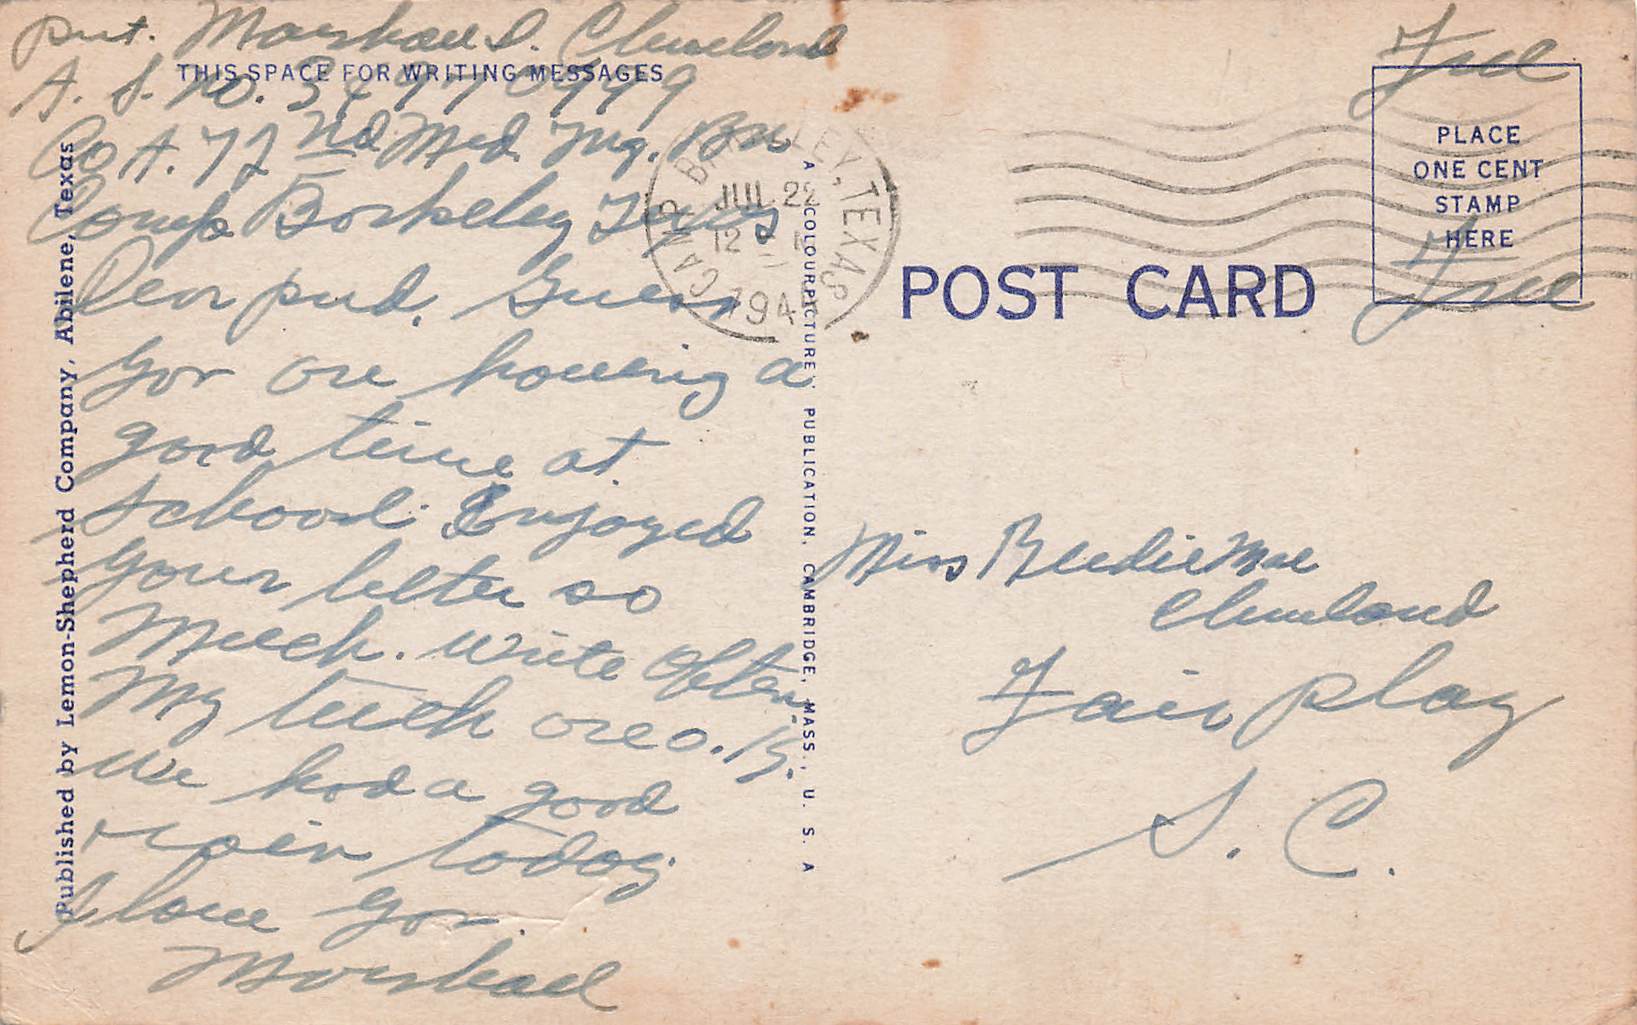 Pvt. Marshall D. Cleveland
THIS SPACE FOR WRITING MESSAGES
A. S. No. 34970999
Co A. 72 nd Med. Trg. Bn
Camp Barkeley Texas
Dear pud. Guess
you are having a
good time at
school. Enjoyed
your letter so
Much. write often
My teeth are O. K.
we had a good
rain today.
I love you.
Marshall
Published by Lemon-Shepherd Company, Abilene, Texas
A "COLOURPICTURE" PUBLICATION, CAMBRIDGE, MASS., U. S. A
CAMP BARKELEY, TEXAS
JUL 22
12
194
Free
PLACE
ONE CENT
STAMP
HERE
Free
POST CARD
Miss Mae
Cleveland
Fair play
S. C.